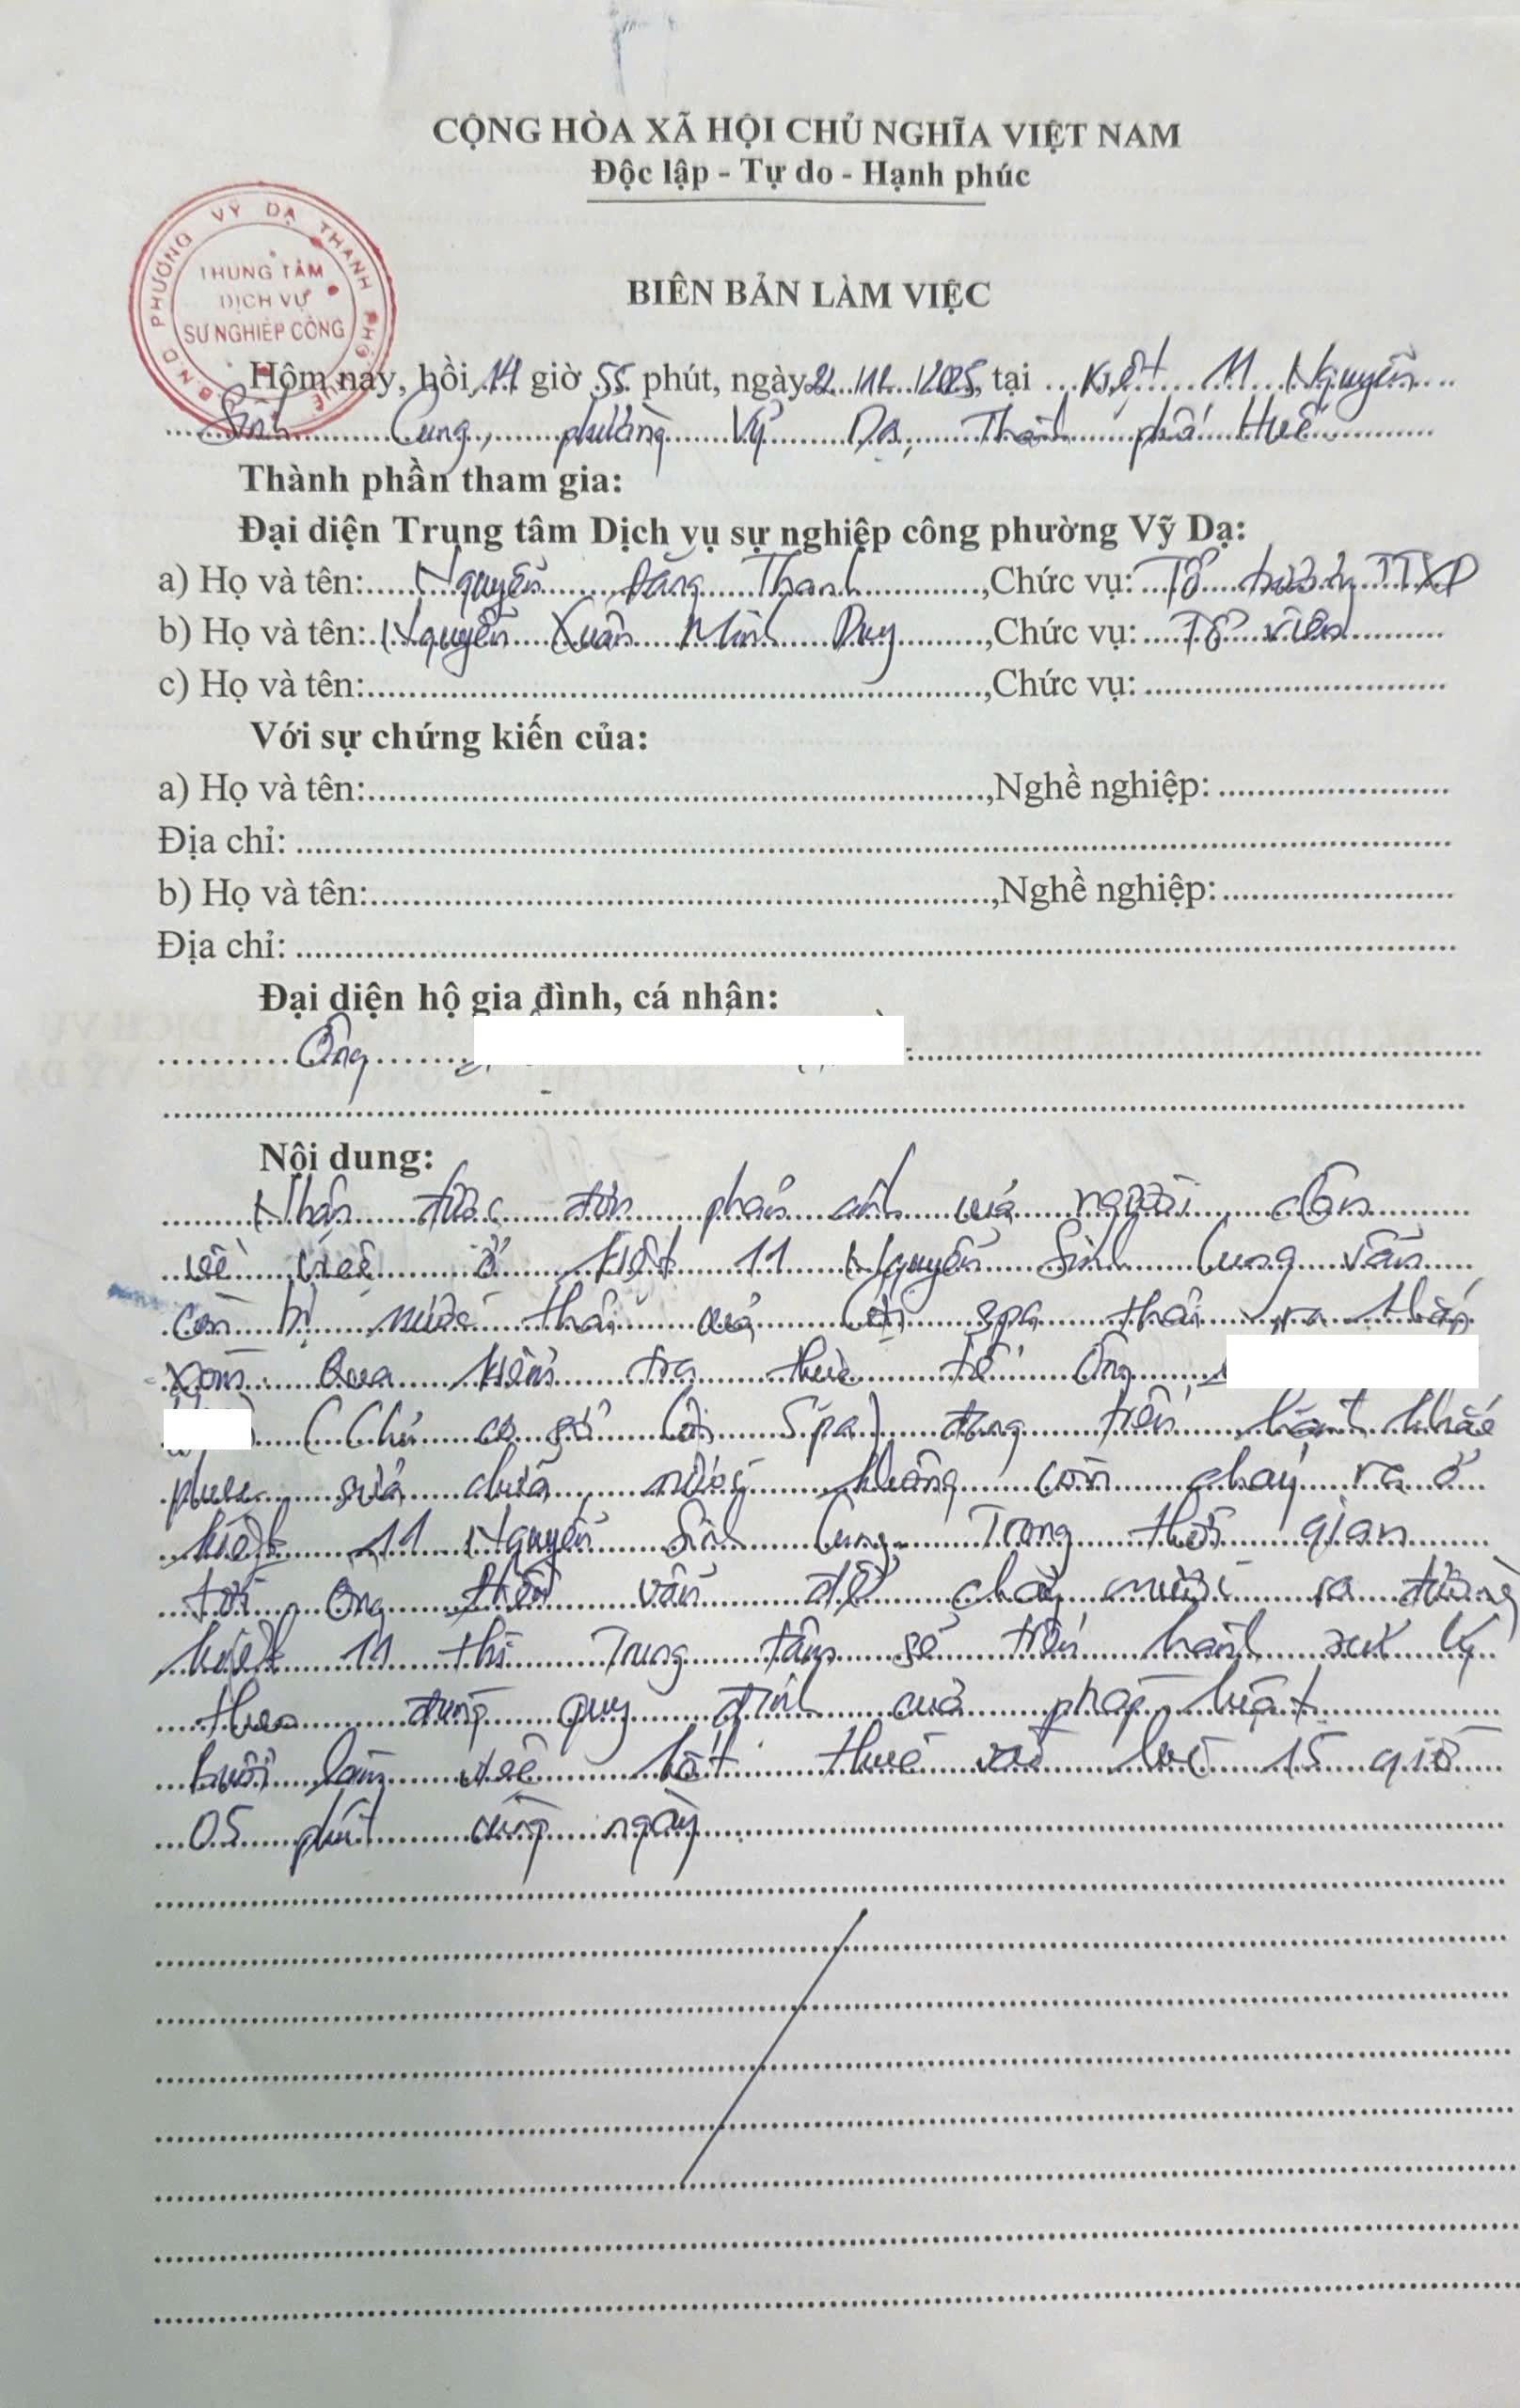 CỘNG HÒA XÃ HỘI CHỦ NGHĨA VIỆT NAM
Độc lập - Tự do - Hạnh phúc
U.B.N.D PHƯỜNG VỸ DẠ THÀNH PHỐ HUẾ
TRUNG TÂM
DỊCH VỤ
SỰ NGHIỆP CÔNG
BIÊN BẢN LÀM VIỆC
Hôm nay, hồi 14 giờ 55 phút, ngày 22/12/2025, tại Kiệt 11 Nguyễn
Sinh Cung, phường Vỹ Dạ, Thành phố Huế
Thành phần tham gia:
Đại diện Trung tâm Dịch vụ sự nghiệp công phường Vỹ Dạ:
a) Họ và tên: Nguyễn Đăng Thanh, Chức vụ: Tổ trưởng
b) Họ và tên: Nguyễn Xuân Minh Duy, Chức vụ: Tổ viên
c) Họ và tên:, Chức vụ:
Với sự chứng kiến của:
a) Họ và tên:, Nghề nghiệp:
Địa chỉ:
b) Họ và tên:, Nghề nghiệp:
Địa chỉ:
Đại diện hộ gia đình, cá nhân:
Ông
Nội dung:
Nhận được đơn phản ánh của người dân
về việc ở kiệt 11 Nguyễn Sinh Cung vẫn
còn bị nước thải của spa thải ra
Qua kiểm tra thực tế Ông
(Chủ cơ sở Spa) đang tiến hành khắc
phục sửa chữa, nước không còn chảy ra ở
kiệt 11 Nguyễn Sinh Cung. Trong thời gian
tới Ông vẫn để chảy nước ra đường
kiệt 11 thì Trung tâm sẽ tiến hành xử lý
theo đúng quy định của pháp luật
buổi làm việc kết thúc vào lúc 15 giờ
05 phút cùng ngày